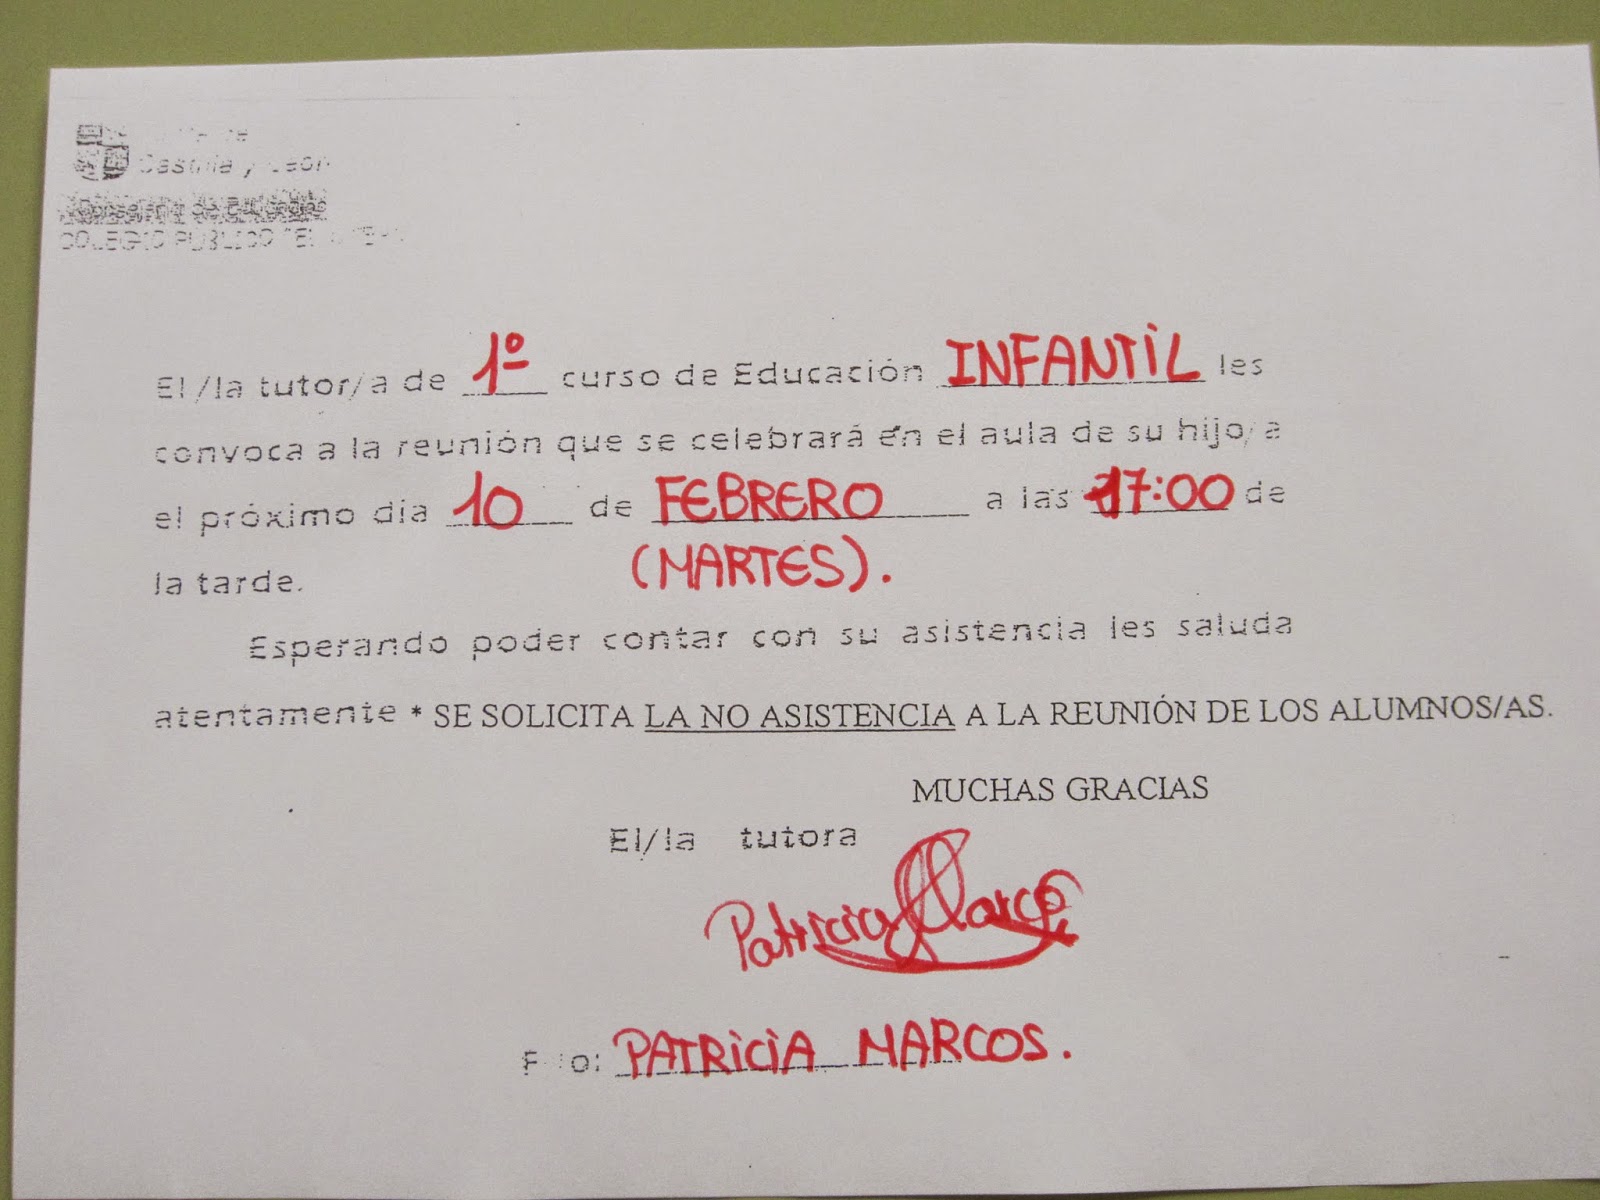 Castilla y León
Consejería de Educación
COLEGIO PUBLICO
El/la tutor/a de 1º curso de Educación INFANTIL les
convoca a la reunión que se celebrará en el aula de su hijo/a
el próximo día 10 de FEBRERO a las 17:00 de
la tarde. (MARTES).
Esperando poder contar con su asistencia les saluda
atentamente * SE SOLICITA LA NO ASISTENCIA A LA REUNIÓN DE LOS ALUMNOS/AS.
MUCHAS GRACIAS
El/la tutora
Patricia Marcos
PATRICIA MARCOS.